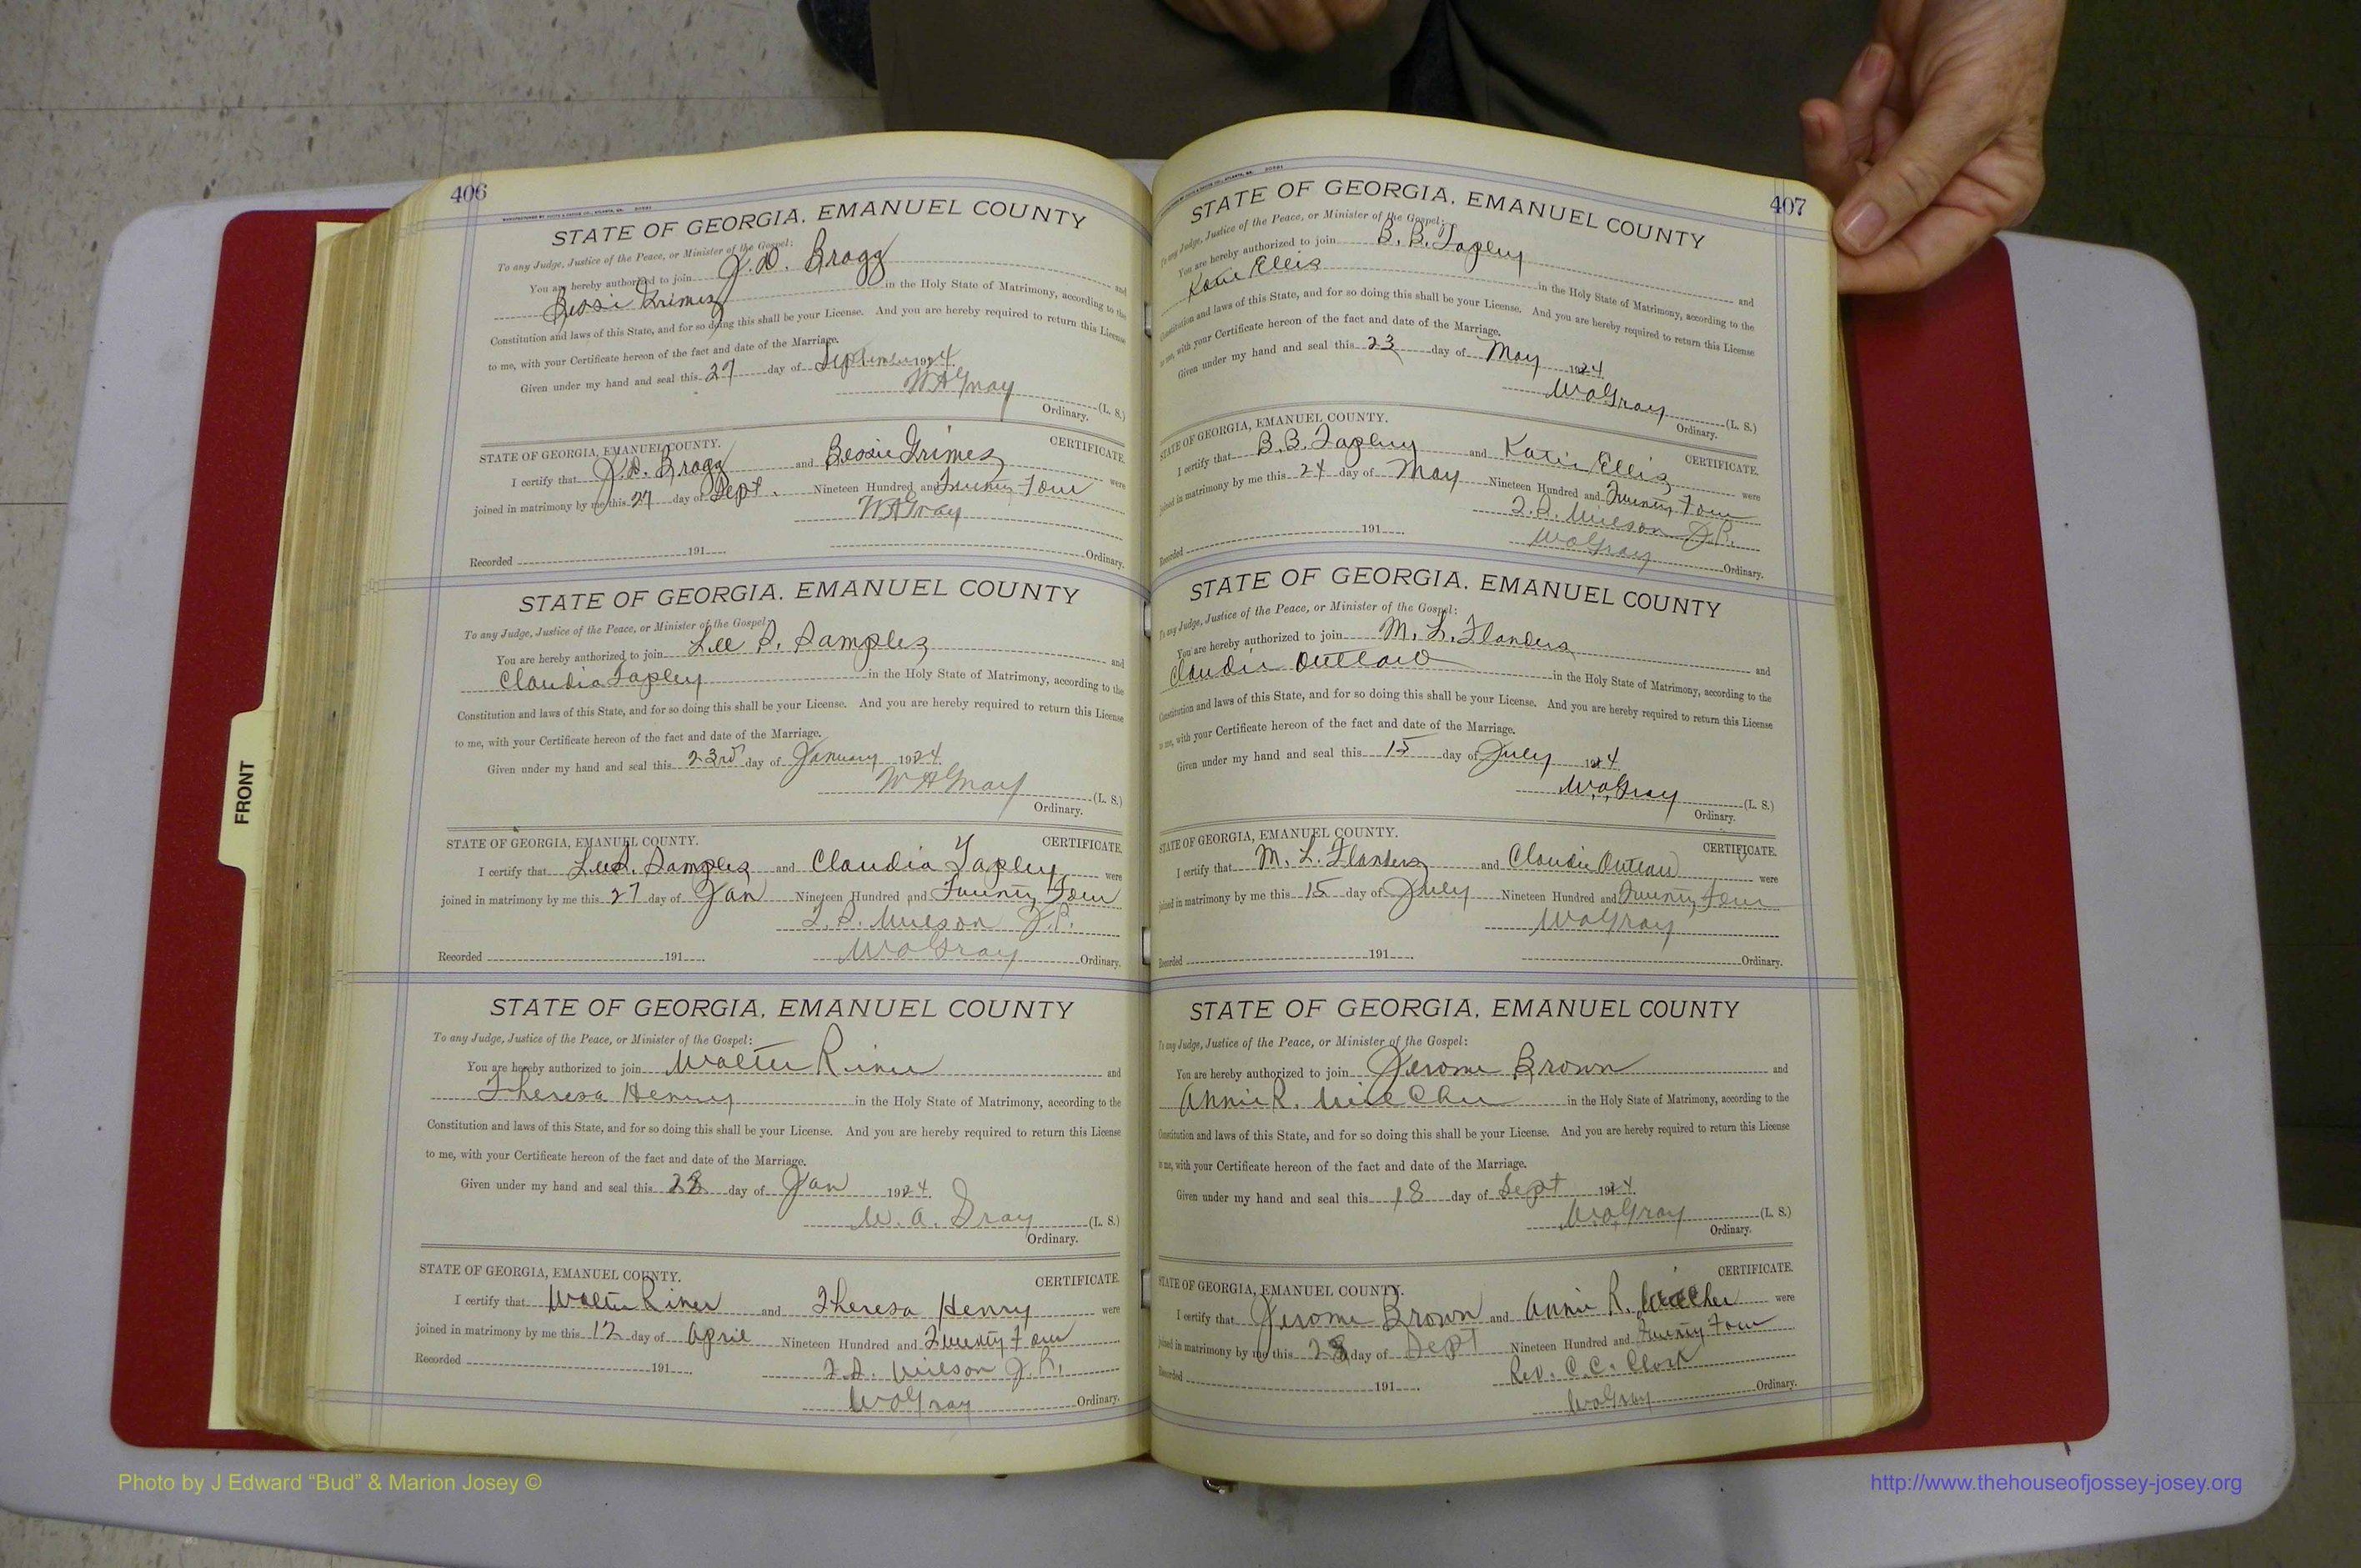 406
STATE OF GEORGIA, EMANUEL COUNTY
To any Judge, Justice of the Peace, or Minister of the Gospel:
You are hereby authorized to join J. D. Bragg and
Bessie Grimes in the Holy State of Matrimony, according to the
Constitution and laws of this State, and for so doing this shall be your License. And you are hereby required to return this License
to me, with your Certificate hereon of the fact and date of the Marriage.
Given under my hand and seal this 27 day of September 1924
W A Gray (L. S.)
Ordinary.
STATE OF GEORGIA, EMANUEL COUNTY. CERTIFICATE.
I certify that J. D. Bragg and Bessie Grimes were
joined in matrimony by me this 27 day of Sept. Nineteen Hundred and Twenty Four
W A Gray
Recorded 191 Ordinary.
STATE OF GEORGIA, EMANUEL COUNTY
To any Judge, Justice of the Peace, or Minister of the Gospel:
You are hereby authorized to join Lee S. Samples and
Claudia Tapley in the Holy State of Matrimony, according to the
Constitution and laws of this State, and for so doing this shall be your License. And you are hereby required to return this License
to me, with your Certificate hereon of the fact and date of the Marriage.
Given under my hand and seal this 23rd day of January 1924
W A Gray (L. S.)
Ordinary.
STATE OF GEORGIA, EMANUEL COUNTY. CERTIFICATE.
I certify that Lee S. Samples and Claudia Tapley were
joined in matrimony by me this 27 day of Jan Nineteen Hundred and Twenty Four
Wilson J.P.
Recorded 191 W A Gray Ordinary.
STATE OF GEORGIA, EMANUEL COUNTY
To any Judge, Justice of the Peace, or Minister of the Gospel:
You are hereby authorized to join Walter Riner and
Theresa Henry in the Holy State of Matrimony, according to the
Constitution and laws of this State, and for so doing this shall be your License. And you are hereby required to return this License
to me, with your Certificate hereon of the fact and date of the Marriage.
Given under my hand and seal this 28 day of Jan 1924
W. A. Gray (L. S.)
Ordinary.
STATE OF GEORGIA, EMANUEL COUNTY. CERTIFICATE.
I certify that Walter Riner and Theresa Henry were
joined in matrimony by me this 12 day of April Nineteen Hundred and Twenty Four
Recorded 191 Wilson J.P.
W A Gray Ordinary.
407
STATE OF GEORGIA, EMANUEL COUNTY
To any Judge, Justice of the Peace, or Minister of the Gospel:
You are hereby authorized to join B. B. Tapley and
Katie Ellis in the Holy State of Matrimony, according to the
Constitution and laws of this State, and for so doing this shall be your License. And you are hereby required to return this License
to me, with your Certificate hereon of the fact and date of the Marriage.
Given under my hand and seal this 23 day of May 1924
W A Gray (L. S.)
Ordinary.
STATE OF GEORGIA, EMANUEL COUNTY. CERTIFICATE.
I certify that B. B. Tapley and Katie Ellis were
joined in matrimony by me this 24 day of May Nineteen Hundred and Twenty Four
Wilson J.P.
Recorded 191 W A Gray Ordinary.
STATE OF GEORGIA, EMANUEL COUNTY
To any Judge, Justice of the Peace, or Minister of the Gospel:
You are hereby authorized to join M. L. Flanders and
Claudie Outlaw in the Holy State of Matrimony, according to the
Constitution and laws of this State, and for so doing this shall be your License. And you are hereby required to return this License
to me, with your Certificate hereon of the fact and date of the Marriage.
Given under my hand and seal this 15 day of July 1924
W. A. Gray (L. S.)
Ordinary.
STATE OF GEORGIA, EMANUEL COUNTY. CERTIFICATE.
I certify that M. L. Flanders and Claudie Outlaw were
joined in matrimony by me this 15 day of July Nineteen Hundred and Twenty Four
W A Gray
Recorded 191 Ordinary.
STATE OF GEORGIA, EMANUEL COUNTY
To any Judge, Justice of the Peace, or Minister of the Gospel:
You are hereby authorized to join Jerome Brown and
Annie R. in the Holy State of Matrimony, according to the
Constitution and laws of this State, and for so doing this shall be your License. And you are hereby required to return this License
to me, with your Certificate hereon of the fact and date of the Marriage.
Given under my hand and seal this 18 day of Sept 1924
W. A. Gray (L. S.)
Ordinary.
STATE OF GEORGIA, EMANUEL COUNTY. CERTIFICATE.
I certify that Jerome Brown and Annie R. were
joined in matrimony by me this 28 day of Sept Nineteen Hundred and Twenty Four
Recorded 191 Rev. C. C. Clark
W A Gray Ordinary.
FRONT
Photo by J Edward “Bud” & Marion Josey ©
http://www.thehouseofjossey-josey.org